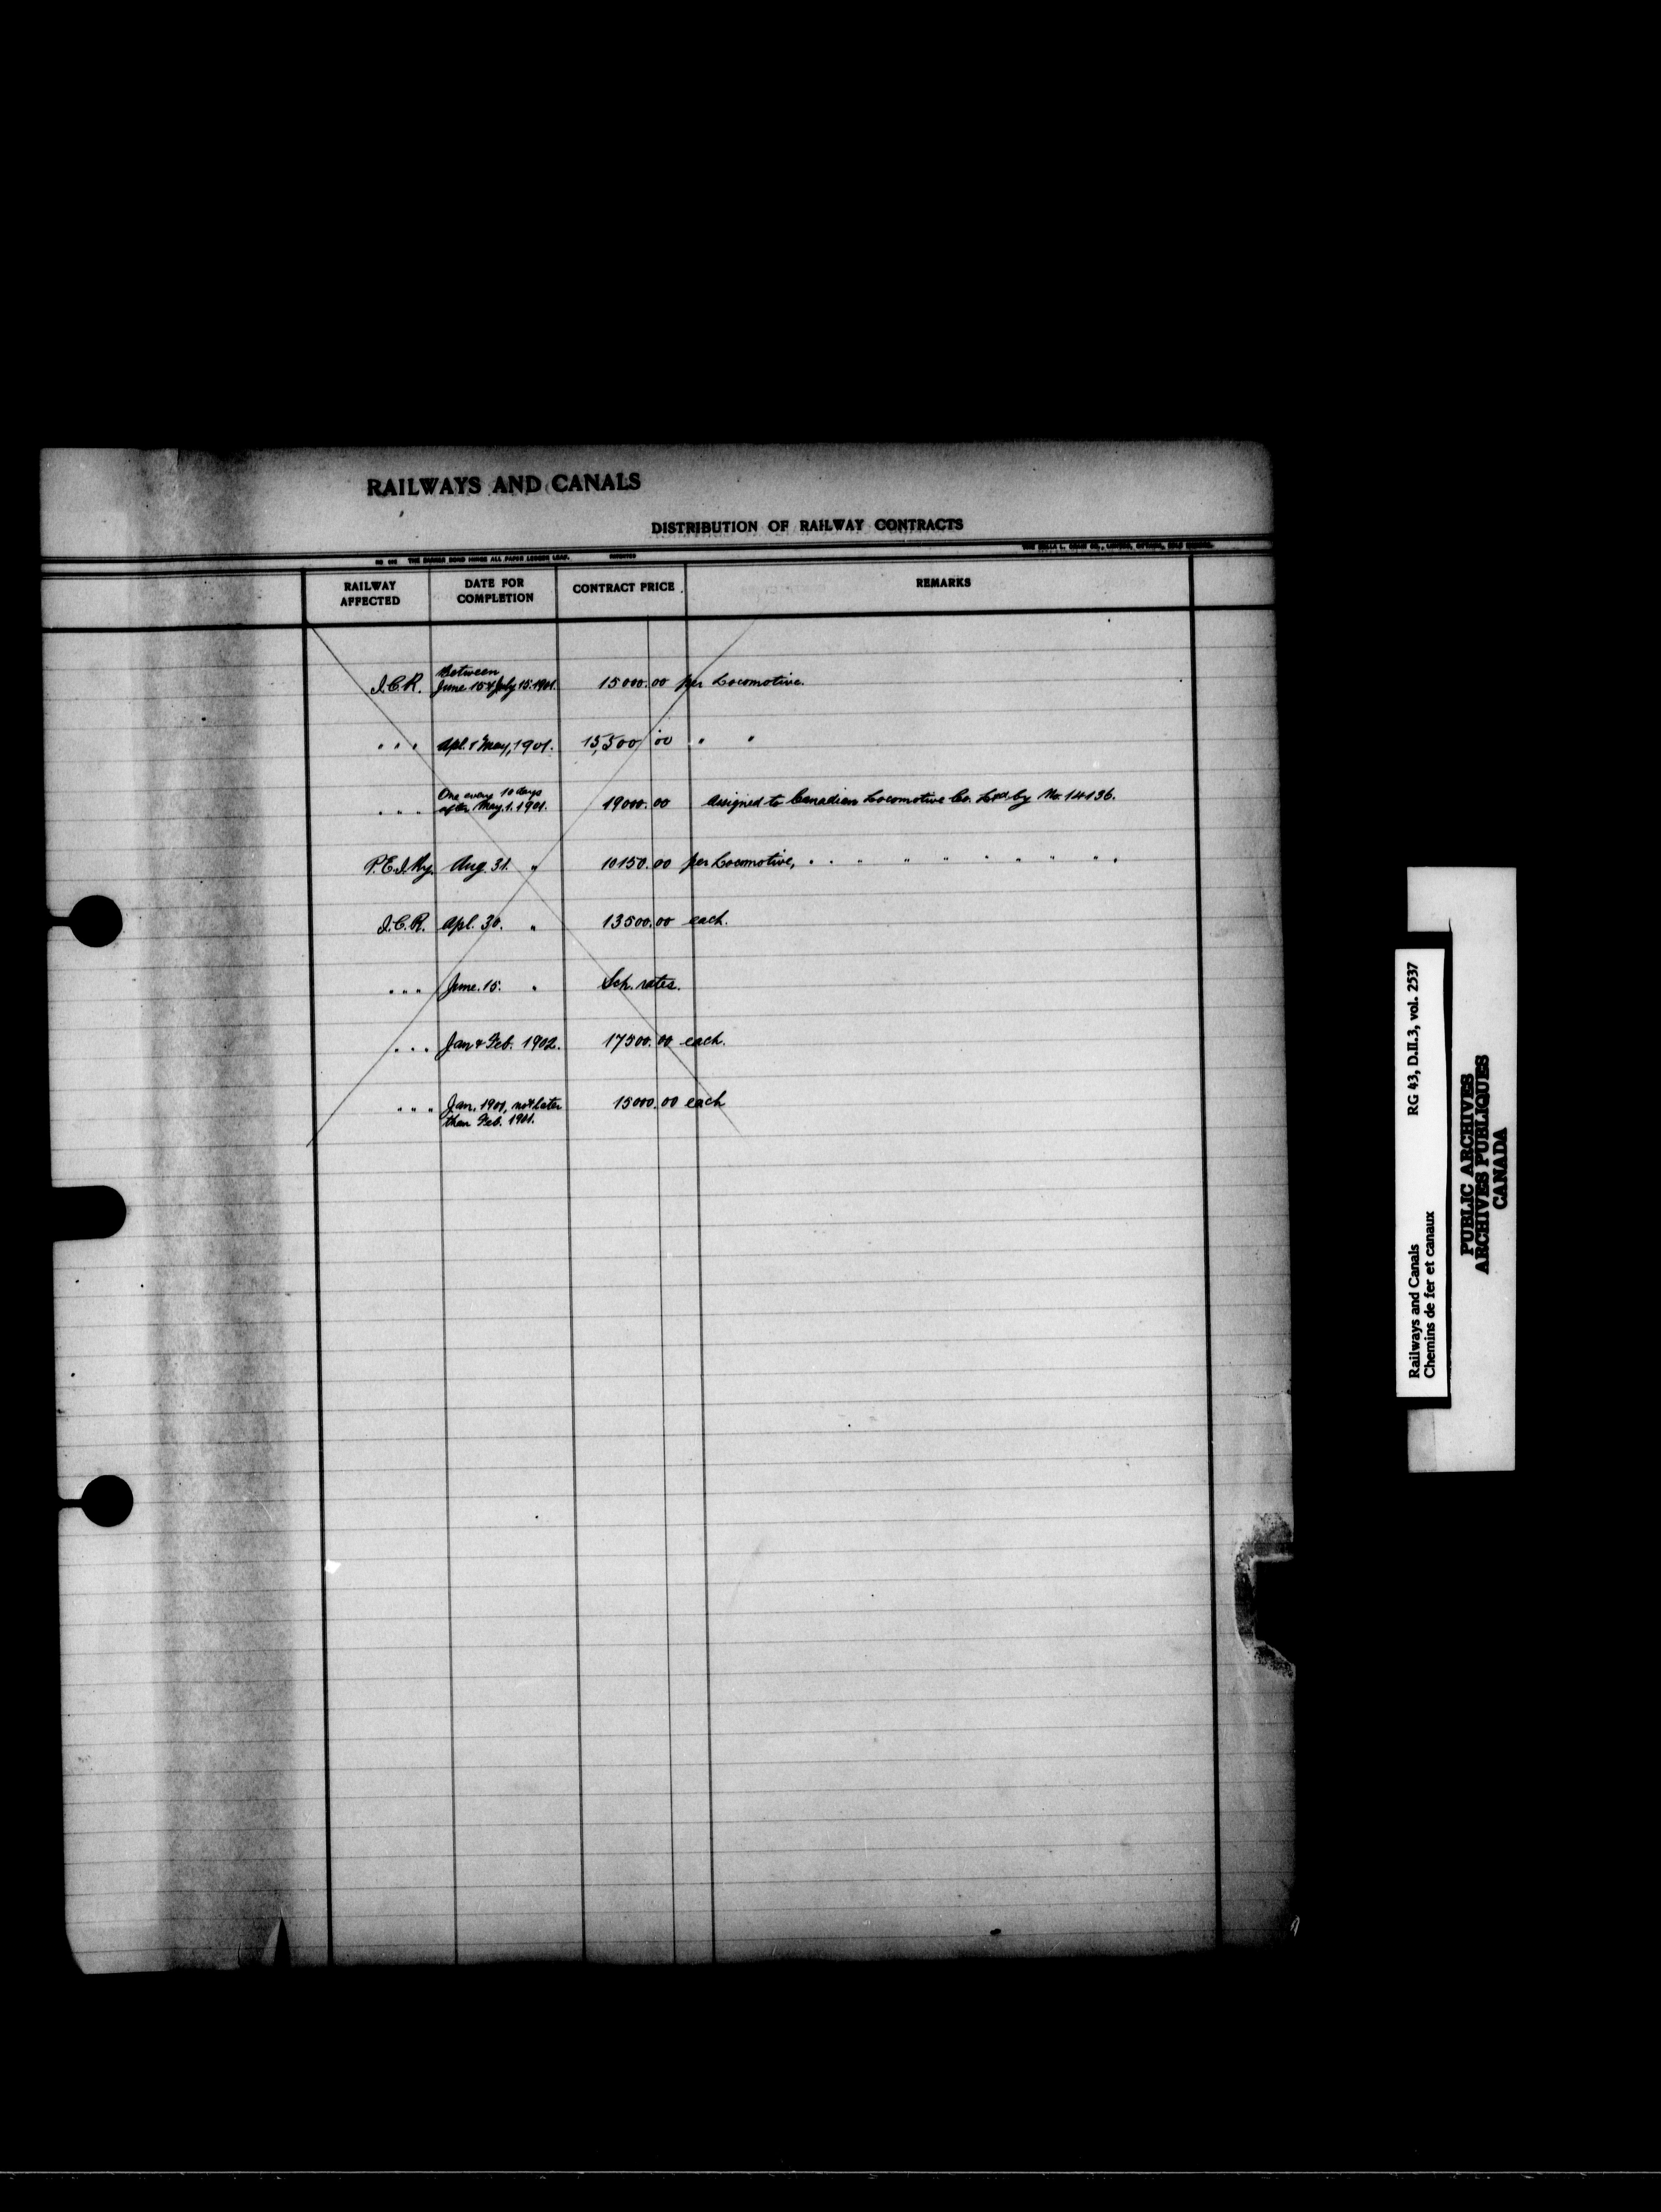 RAILWAYS AND CANALS
DISTRIBUTION OF RAILWAY CONTRACTS
THE BARBER BOND HINGE ALL PAPER LEDGER LEAF. PATENTED
RAILWAY AFFECTED DATE FOR COMPLETION CONTRACT PRICE REMARKS
Between
I.C.R. June 15 & July 15. 1901. 15000.00 per Locomotive.
" " " Apl. & May, 1901. 15,500 00 " "
One every 10 days
" " " after May. 1. 1901. 19000.00 Assigned to Canadian Locomotive Co. Ltd by No. 14136.
P.E.I. Ry. Aug. 31. " 10150.00 per Locomotive, " " " " " " " " " "
I.C.R. Apl. 30. " 13500.00 each.
" " " June. 15. " Sch. rates.
" " " Jan & Feb. 1902. 17500.00 each.
" " " Jan. 1901, not later 15000.00 each
than Feb. 1901.
Railways and Canals RG 43, D.II.3, vol. 2537
Chemins de fer et canaux
PUBLIC ARCHIVES
ARCHIVES PUBLIQUES
CANADA